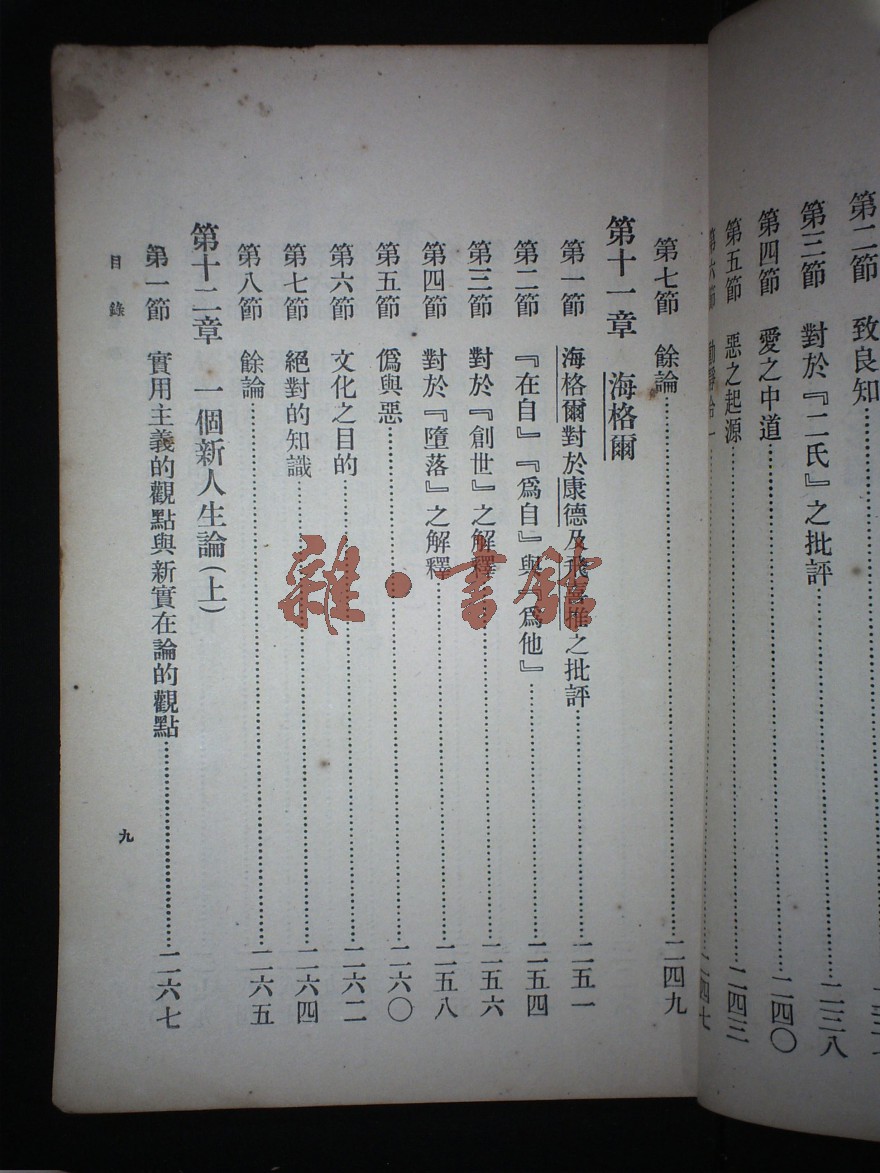 第二節　致良知
第三節　對於『二氏』之批評……二三八
第四節　愛之中道……二四〇
第五節　惡之起源……二四三
第六節　動靜合一……二四七
第七節　餘論……二四九
第十一章　海格爾
第一節　海格爾對於康德及飛喜推之批評……二五一
第二節　『在自』『爲自』與『爲他』……二五四
第三節　對於『創世』之解釋……二五六
第四節　對於『墮落』之解釋……二五八
第五節　僞與惡……二六〇
第六節　文化之目的……二六二
第七節　絕對的知識……二六四
第八節　餘論……二六五
第十二章　一個新人生論（上）
第一節　實用主義的觀點與新實在論的觀點……二六七
目錄
九
雜·書館